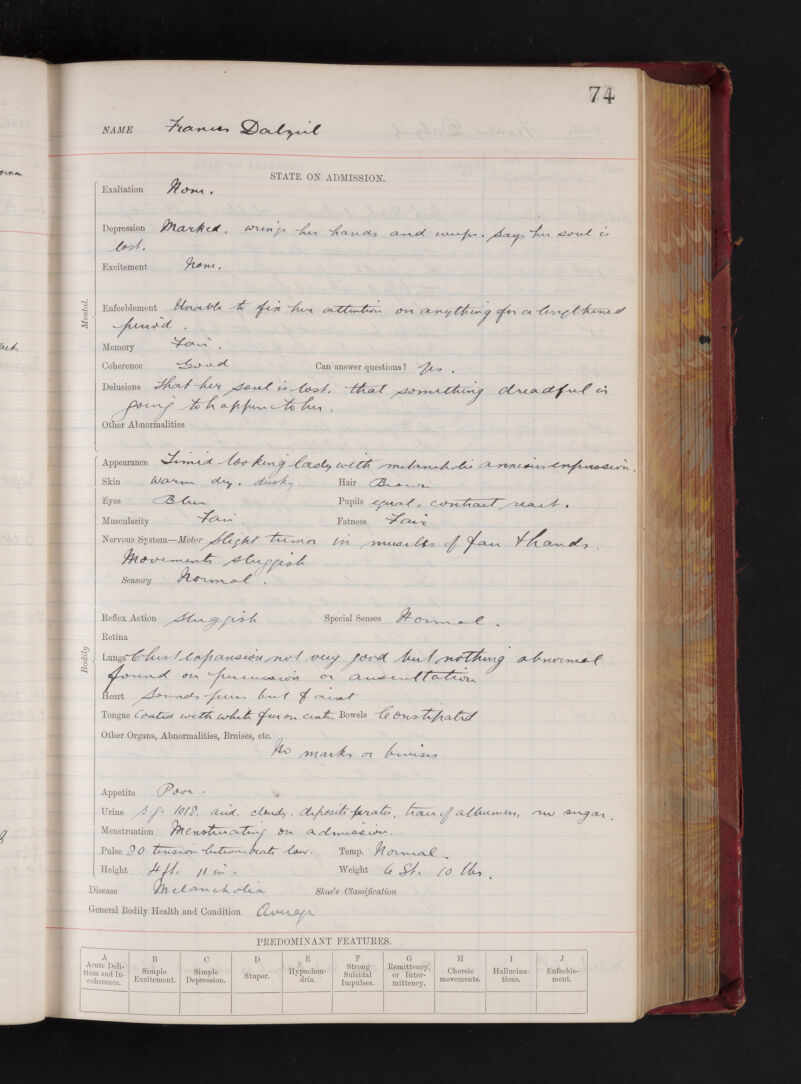 74
NAME Frances Dalziel
STATE ON ADMISSION.
Mental.
Exaltation None.
Depression Marked. wrings her hands and weeps. Says her soul is
lost.
Excitement None.
Enfeeblement Unable to fix her attention on anything for a lengthened
period.
Memory Fair.
Coherence Good Can answer questions? Yes.
Delusions That her soul is lost. that something dreadful is
going to happen to her.
Other Abnormalities
Bodily
Appearance Timid looking lady with melancholic anxious expression.
Skin Warm dry. dusky. Hair Brown
Eyes Blue Pupils equal, contract, react.
Muscularity Fair Fatness Fair
Nervous System—Motor Slight tremor in muscles of face & hands.
Movements sluggish
Sensory Normal.
Reflex Action Sluggish Special Senses Normal.
Retina
Lungs Chest expansion not very good but nothing abnormal
found on percussion or auscultation
Heart Sounds pure but faint
Tongue Coated with white fur on cent. Bowels Constipated
Other Organs, Abnormalities, Bruises, etc.
No marks or bruises
Appetite Poor.
Urine S.g. 1018, acid, cloudy, deposits urates, trace of albumen, no sugar.
Menstruation Menstruating on admission.
Pulse 80 tension between beats low. Temp. Normal.
Height 4 ft. 11 in. Weight 6 St. 10 lbs.
Disease Melancholia Skae's Classification
General Bodily Health and Condition Average
PREDOMINANT FEATURES.
A B C D E F G H I J
Acute Delirium and Incoherence. Simple Excitement. Simple Depression. Stupor. Hypochondria. Strong Suicidal Impulses. Remittency, or Intermittency. Choreic movements. Hallucinations. Enfeeblement.